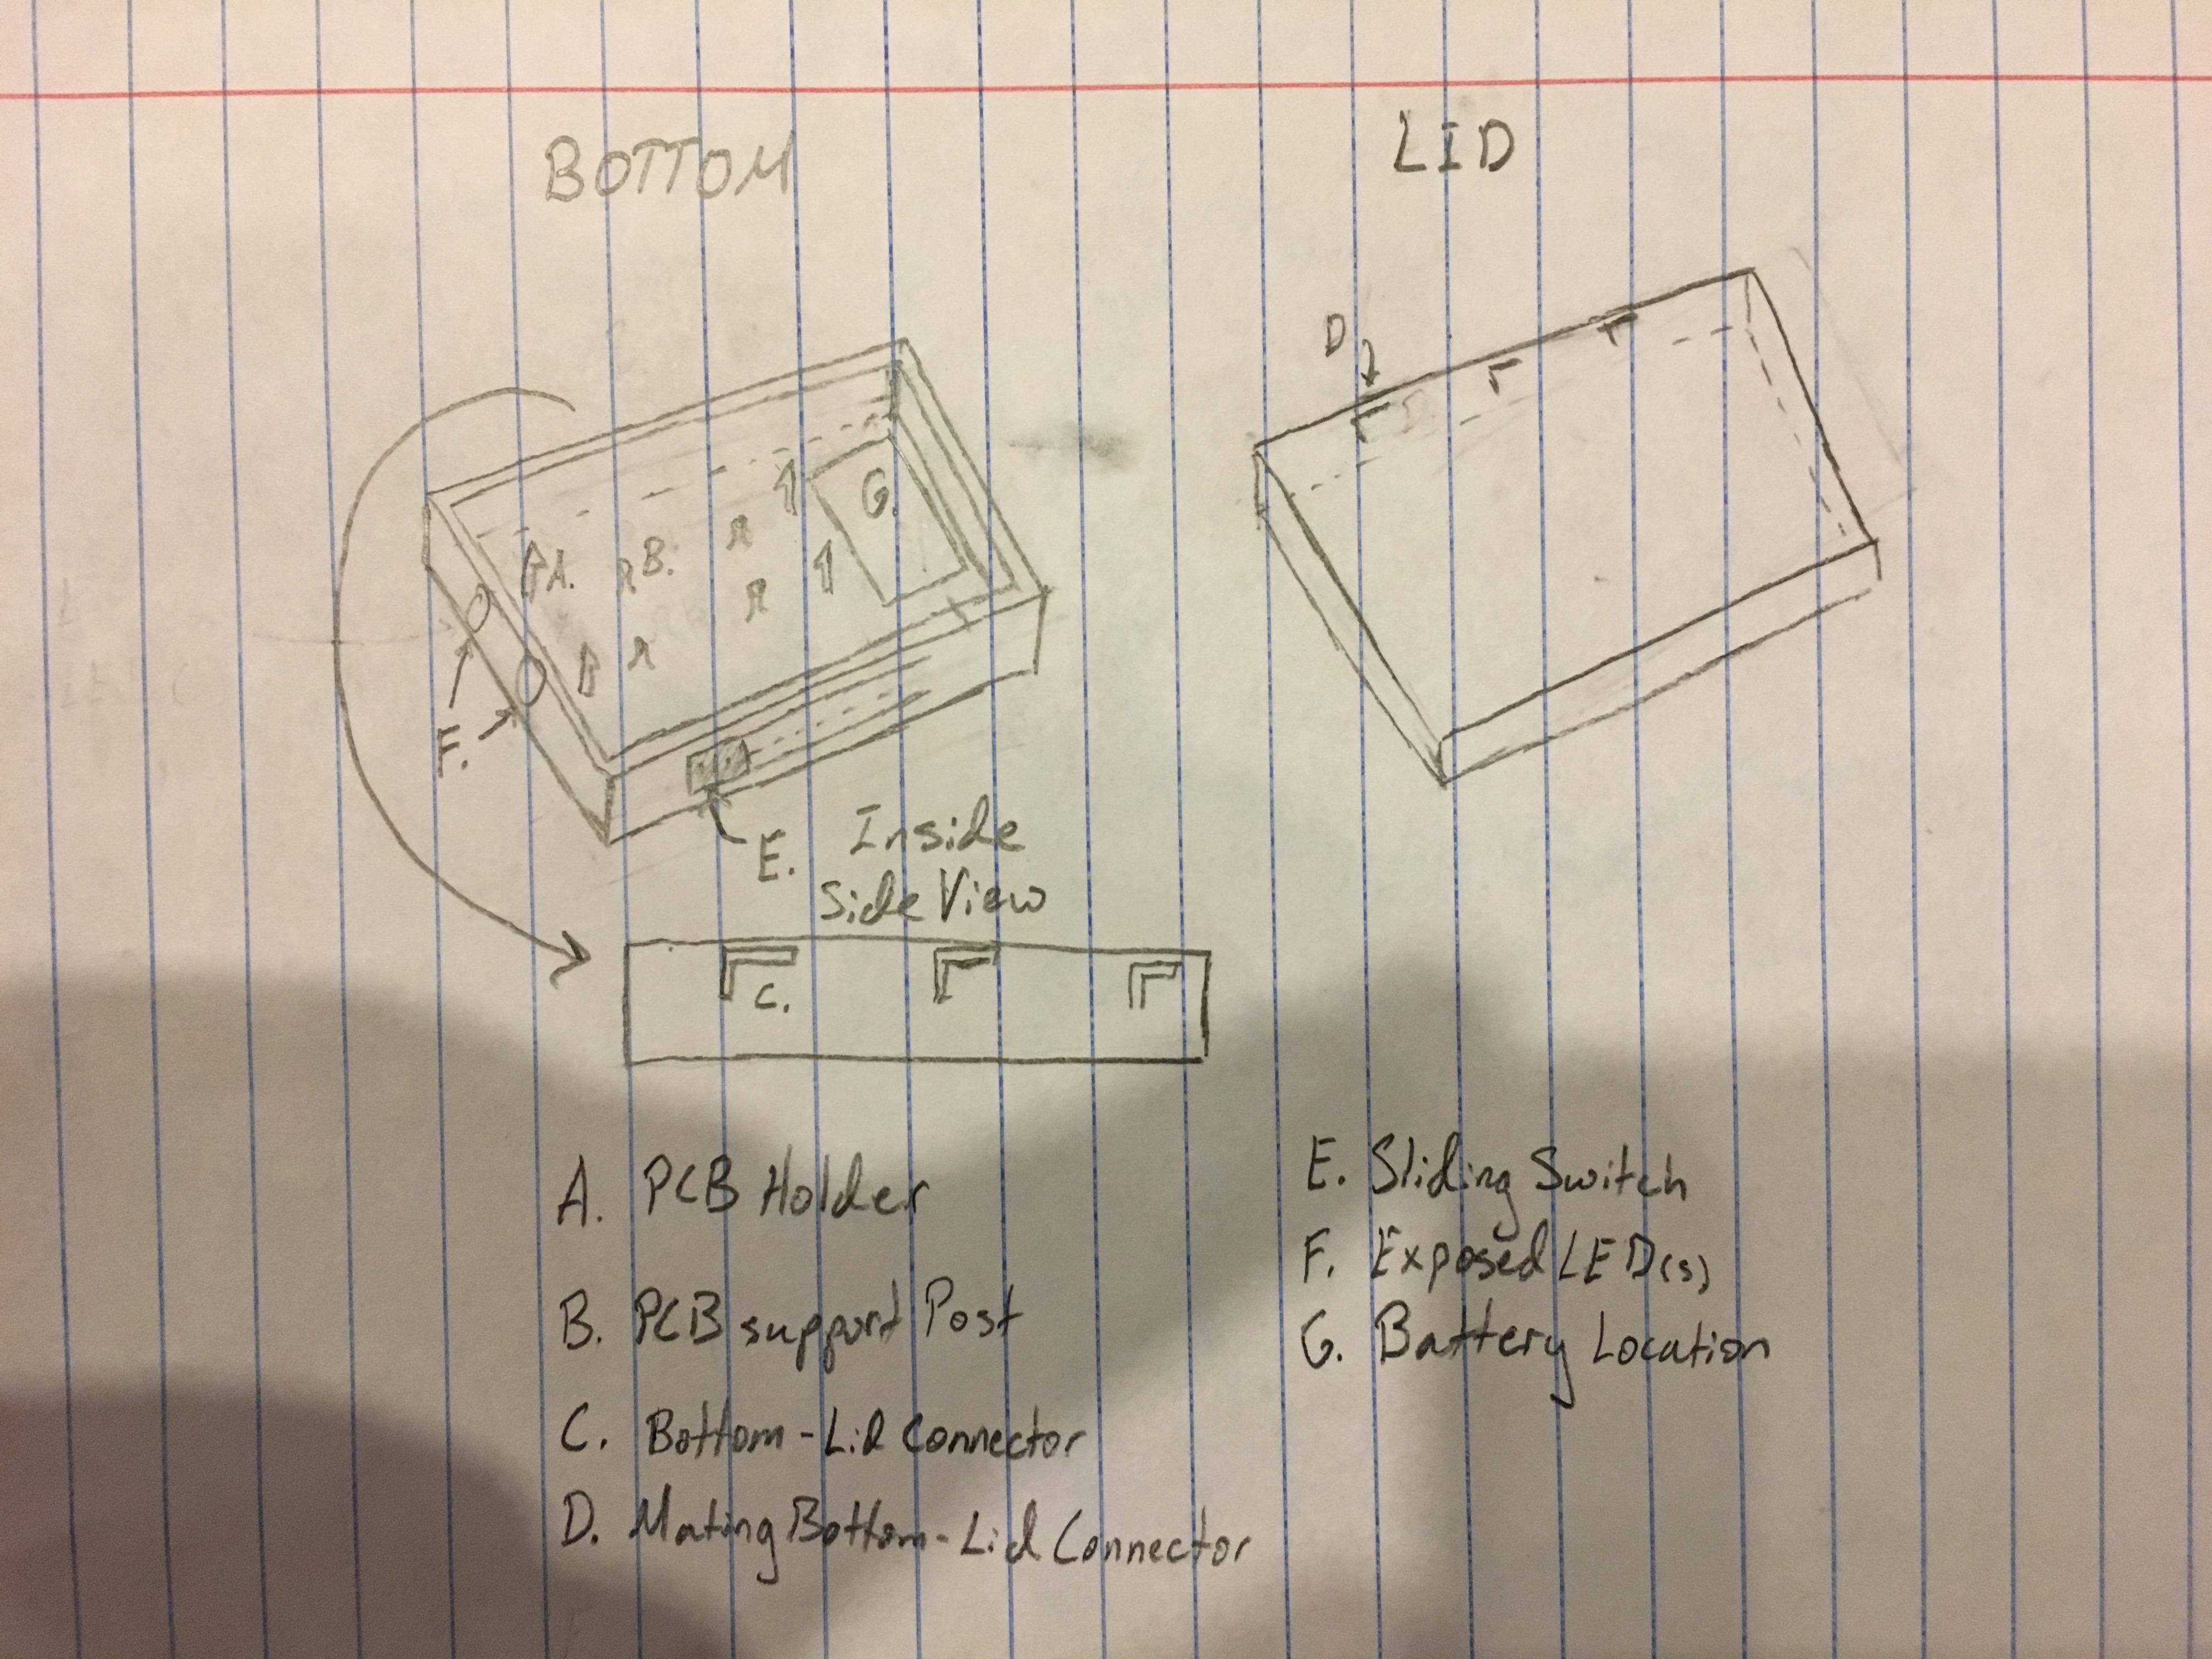 BOTTOM
LID
A.
B.
G.
F.
E.
D
Inside
Side View
C.
A. PCB Holder
B. PCB support Post
C. Bottom-Lid Connector
D. Mating Bottom-Lid Connector
E. Sliding Switch
F. Exposed LED(s)
G. Battery Location